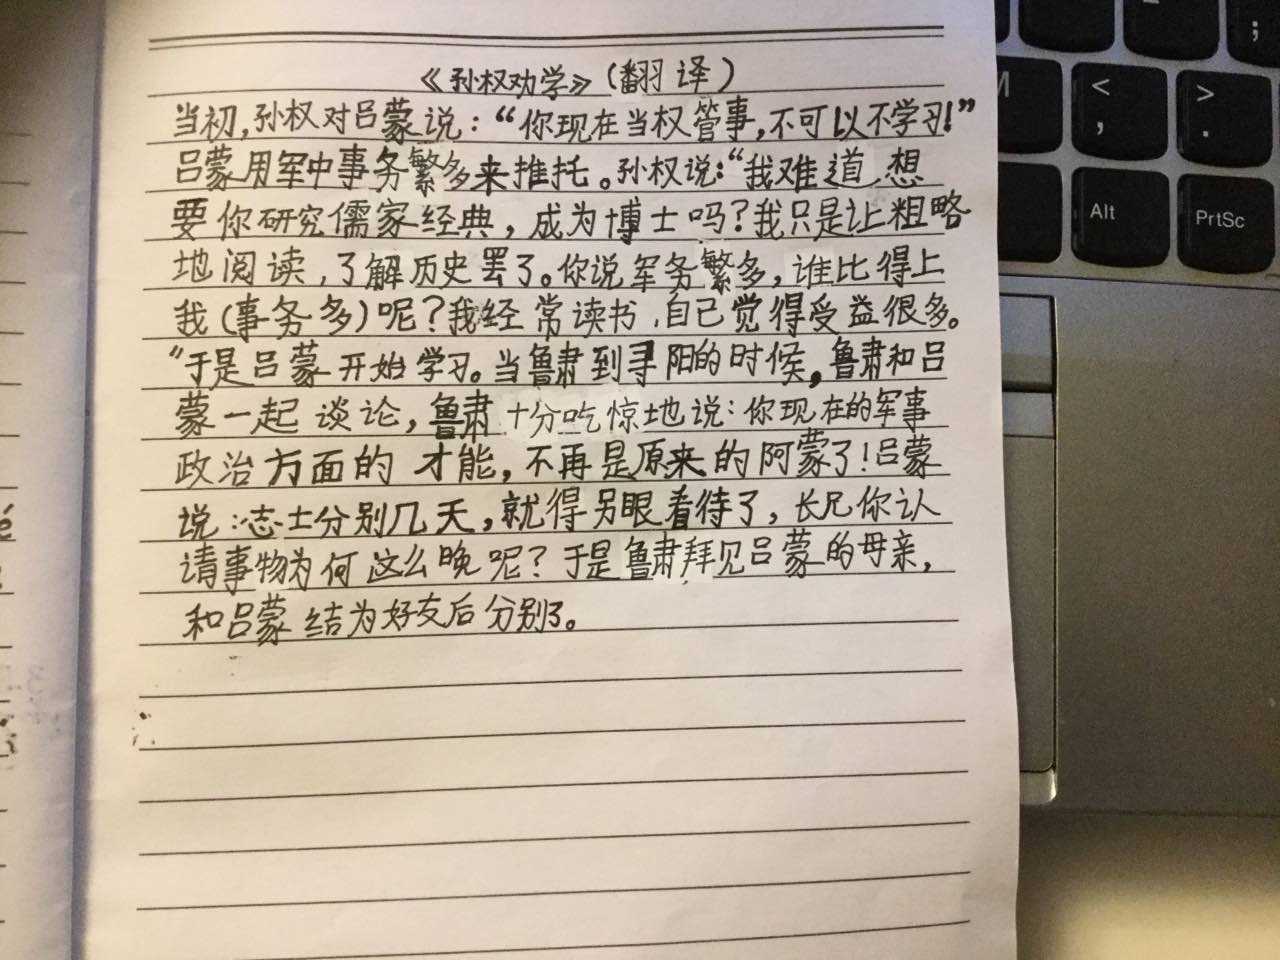 《孙权劝学》(翻译)
当初,孙权对吕蒙说:“你现在当权管事,不可以不学习!”
吕蒙用军中事务繁多来推托。孙权说:“我难道想
要你研究儒家经典,成为博士吗?我只是让粗略
地阅读,了解历史罢了。你说军务繁多,谁比得上
我(事务多)呢?我经常读书,自己觉得受益很多。
”于是吕蒙开始学习。当鲁肃到寻阳的时候,鲁肃和吕
蒙一起谈论,鲁肃十分吃惊地说:你现在的军事
政治方面的才能,不再是原来的阿蒙了!吕蒙
说:志士分别几天,就得另眼看待了,长兄你认
请事物为何这么晚呢?于是鲁肃拜见吕蒙的母亲,
和吕蒙结为好友后分别了。
<
,
>
.
;
M
Alt
PrtSc